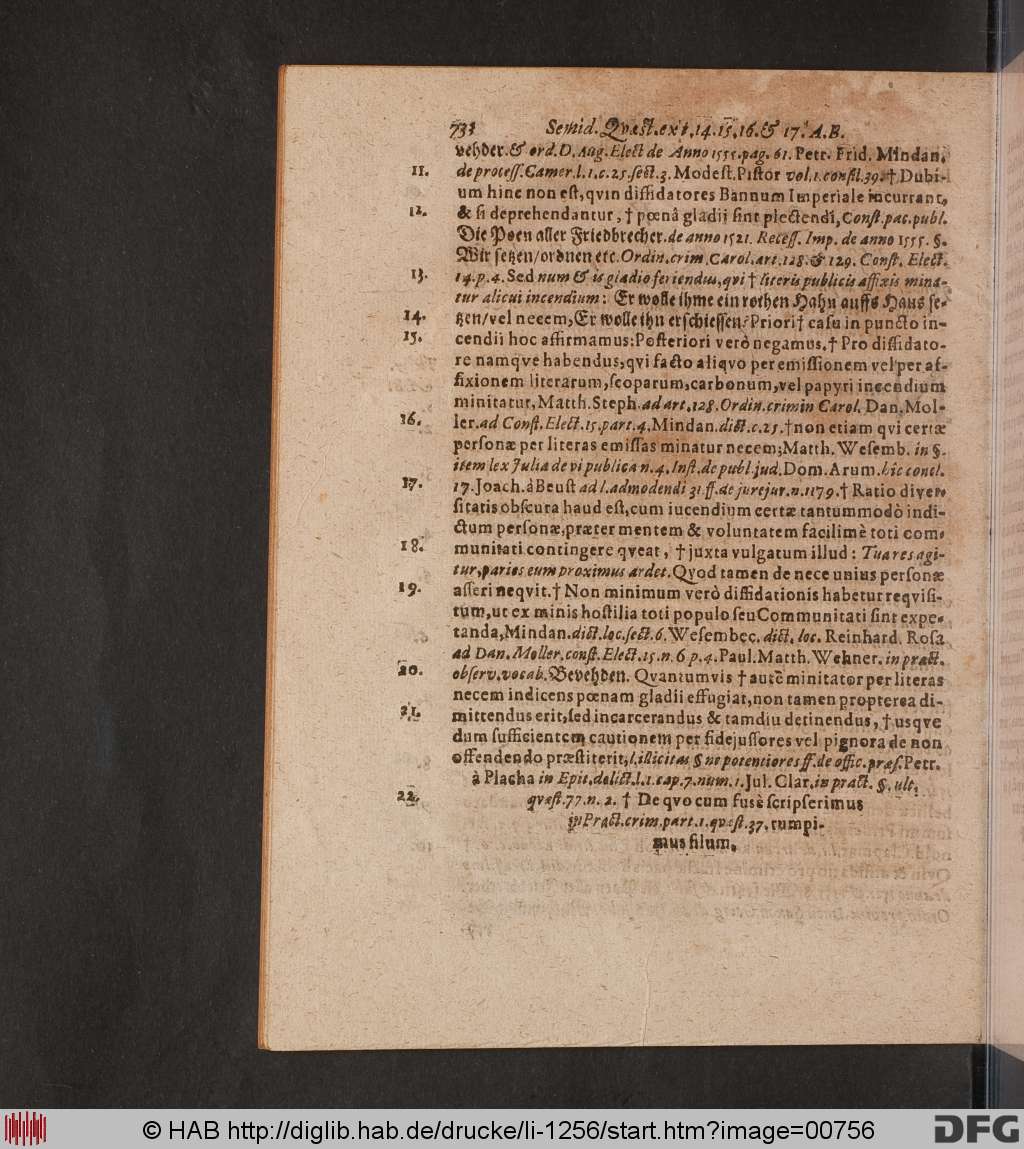 731 Semid. Qvæst. ex t. 14. 15. 16. & 17. A. B.
vehder. & ord. D. Aug. Elect de Anno 1555. pag. 61. Petr. Frid. Mindan.
11. de process. Camer. l. 1. c. 25. sect. 3. Modest. Pistor vol. 1. consil. 39. † Dubi-
um hinc non est, qvin diffidatores Bannum Imperiale incurrant,
12. & si deprehendantur, † pœnâ gladii sint plectendi, Const. pac. publ.
Die Poen aller Friedbrecher. de anno 1521. Recess. Imp. de anno 1555. §.
Wir setzen/ordnen etc. Ordin. crim. Carol. art. 128. & 129. Const. Elect.
13. 14. p. 4. Sed num & is gladio feriendus, qvi † literis publicis affixis mina-
tur alicui incendium: Er wolle ihme ein rothen Hahn auffs Haus se-
14. tzen/vel necem, Er wolle ihn erschiessen? Priori † casu in puncto in-
15. cendii hoc affirmamus: Posteriori verò negamus. † Pro diffidato-
re namqve habendus, qvi facto aliqvo per emissionem vel per af-
fixionem literarum, scoparum, carbonum, vel papyri incendium
minitatur, Matth. Steph. ad art. 128. Ordin. crimin Carol. Dan. Mol-
16. ler. ad Const. Elect. 15. part. 4. Mindan. dict. c. 25. † non etiam qvi certæ
personæ per literas emissas minatur necem; Matth. Wesemb. in §.
item lex Julia de vi publica n. 4. Inst. de publ. jud. Dom. Arum. hic concl.
17. 17. Joach. à Beust ad l. admodendi 31. ff. de jurejur. n. 1179. † Ratio diver-
sitatis obscura haud est, cum iucendium certæ tantummodò indi-
ctum personæ, præter mentem & voluntatem facilimè toti com-
18. munitati contingere qveat, † juxta vulgatum illud: Tua res agi-
tur, paries cum proximus ardet. Qvod tamen de nece unius personæ
19. asseri neqvit. † Non minimum verò diffidationis habetur reqvisi-
tum, ut ex minis hostilia toti populo seu Communitati sint expe-
tanda, Mindan. dict. loc. sect. 6. Wesembec. dict. loc. Reinhard. Rosa
ad Dan. Moller. const. Elect. 15. n. 6 p. 4. Paul. Matth. Wehner. in pract.
20. observ. vocab. Bevehden. Qvantumvis † autẽ minitator per literas
necem indicens pœnam gladii effugiat, non tamen propterea di-
21. mittendus erit, sed incarcerandus & tamdiu detinendus, † usqve
dum sufficientem cautionem per fidejussores vel pignora de non
offendendo præstiterit, l. illicitas § ne potentiores ff. de offic. præs. Petr.
à Placha in Epit. delict. l. 1. cap. 7. num. 1. Jul. Clar. in pract. §. ult.
22. qvæst. 77. n. 2. † De qvo cum fusè scripserimus
in Pract. crim. part. 1. qvæst. 37. rumpi-
mus filum.
© HAB http://diglib.hab.de/drucke/li-1256/start.htm?image=00756
DFG